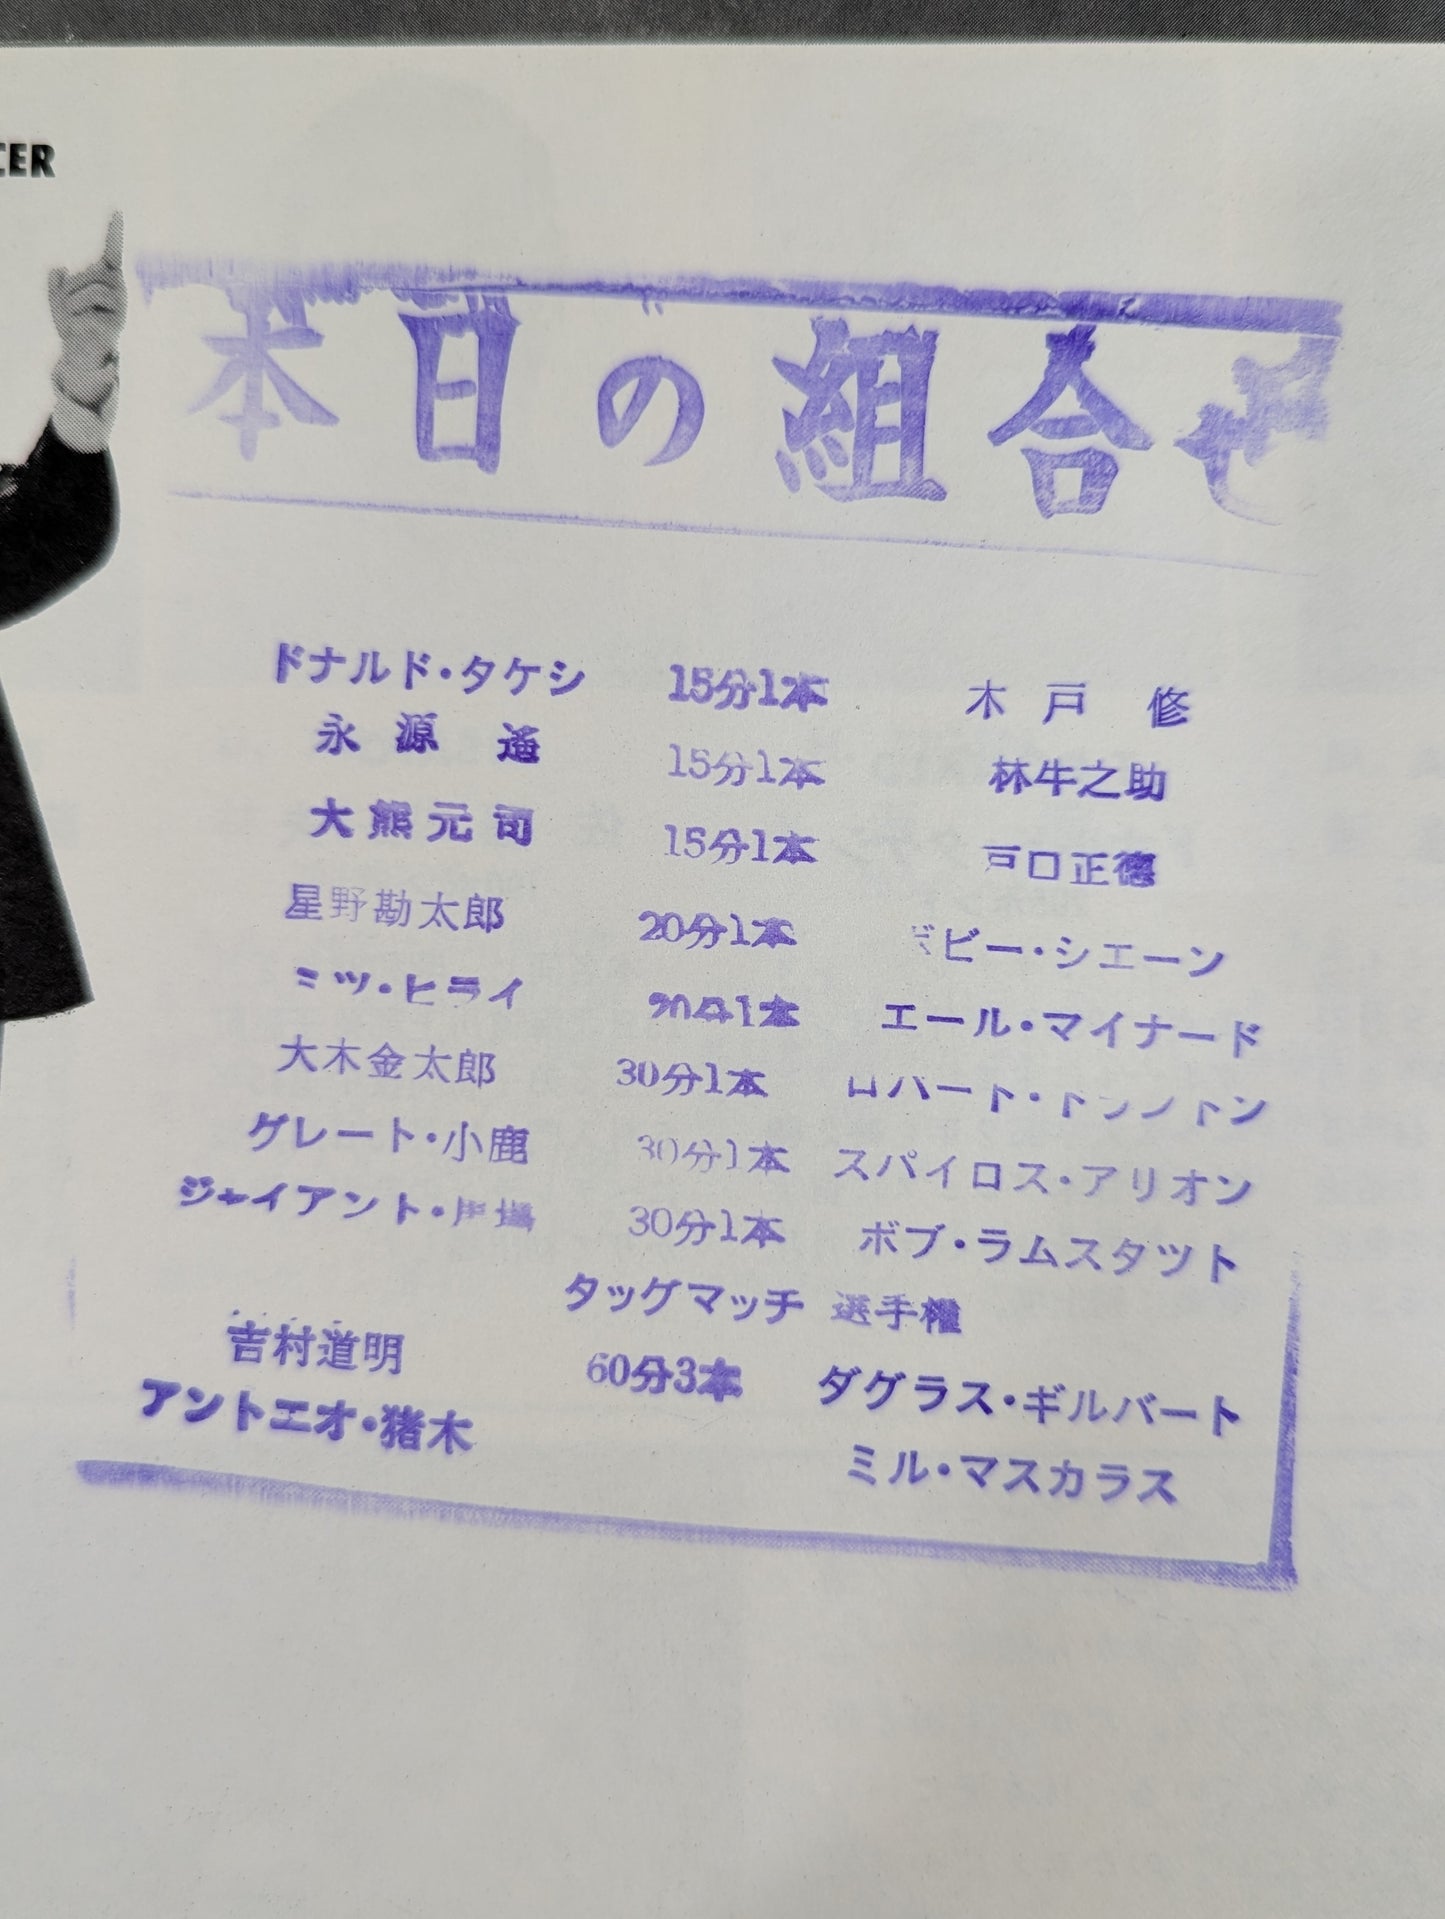 CER
本日の組合せ
ドナルド・タケシ 15分1本 木戸 修
永源 遥 15分1本 林牛之助
大熊元司 15分1本 戸口正徳
星野勘太郎 20分1本 ボビー・シエーン
ミツ・ヒライ 20分1本 エール・マイナード
大木金太郎 30分1本 ロバート・
グレート・小鹿 30分1本 スパイロス・アリオン
ジャイアント・馬場 30分1本 ボブ・ラムスタツト
タッグマッチ 選手権
吉村道明 60分3本 ダグラス・ギルバート
アントニオ・猪木 ミル・マスカラス